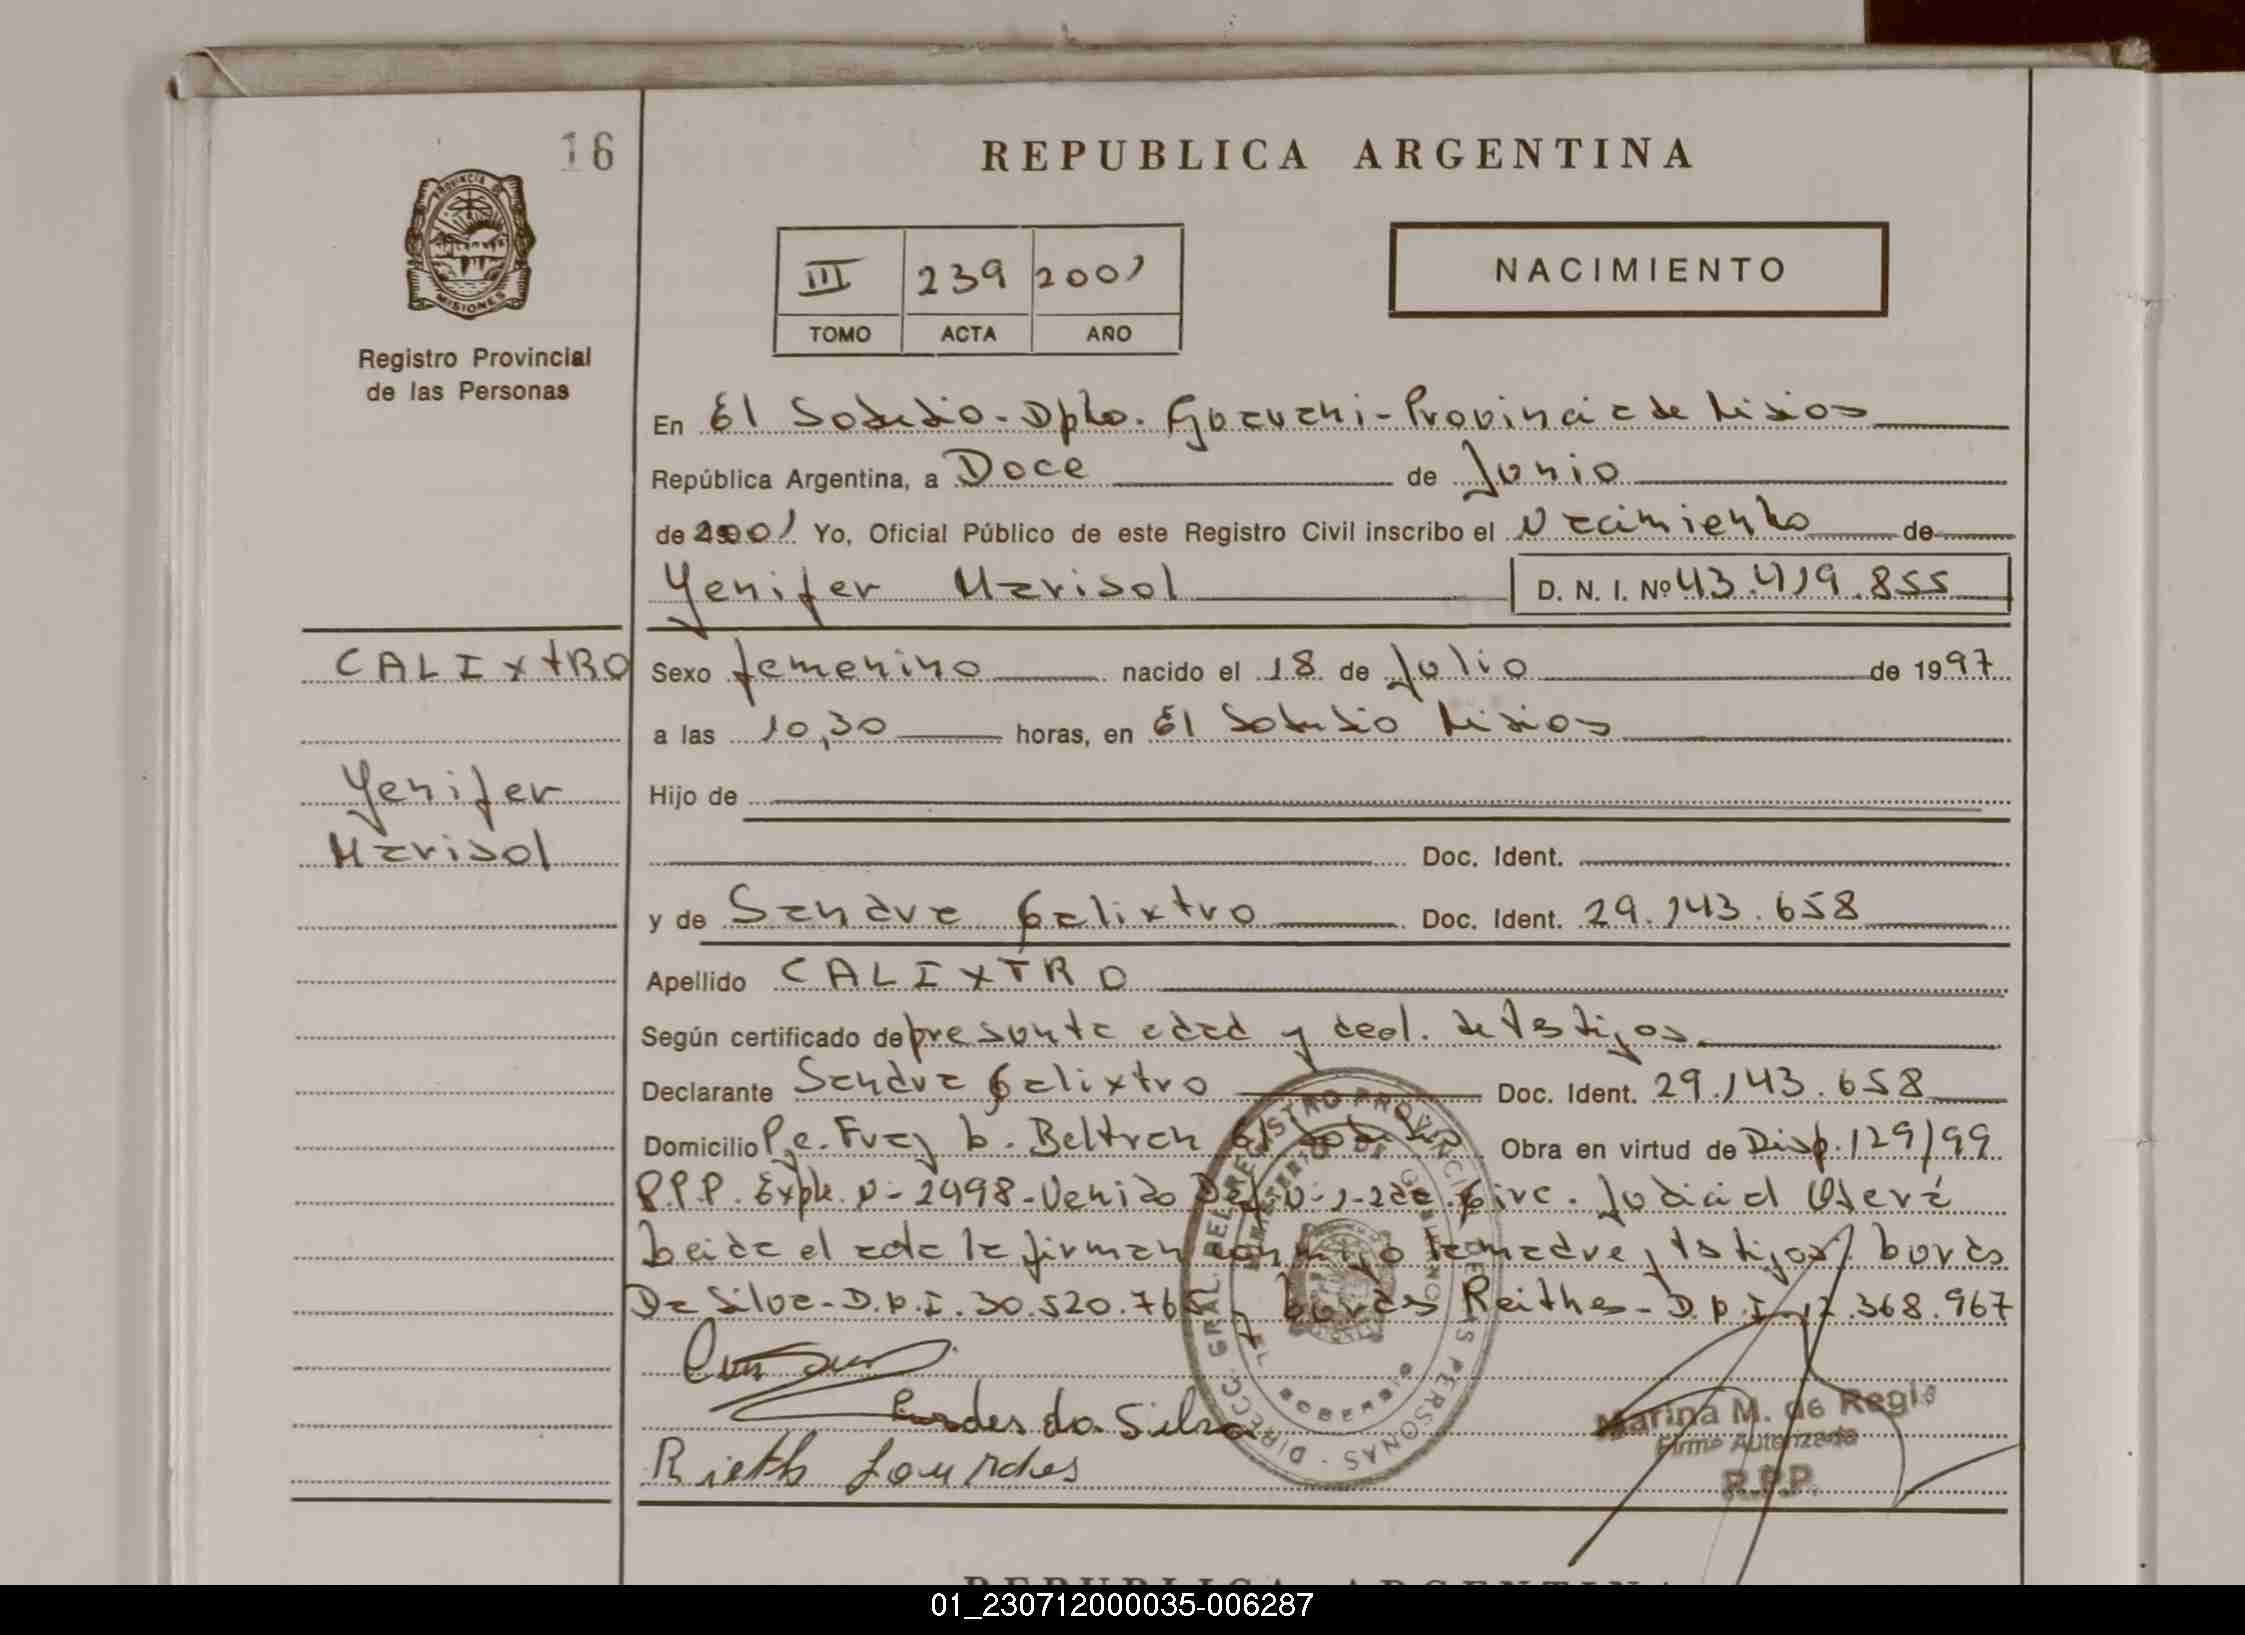 16
REPUBLICA ARGENTINA
PROVINCIA DE
MISIONES
Registro Provincial
de las Personas
III 239 2001
TOMO ACTA AÑO
NACIMIENTO
En El Soberbio - Dpto. Guarani - Provincia de Misiones
República Argentina, a Doce de Junio
de 2001 Yo, Oficial Público de este Registro Civil inscribo el Nacimiento de
Yenifer Marisol D. N. I. Nº 43.419.855
CALIXTRO
Yenifer
Marisol
Sexo femenino nacido el 18 de Julio de 1997
a las 10,30 horas, en El Soberbio Misiones
Hijo de
Doc. Ident.
y de Sandra Calixtro Doc. Ident. 29.143.658
Apellido CALIXTRO
Según certificado de presunta edad y decl. de testigos
Declarante Sandra Calixtro Doc. Ident. 29.143.658
Domicilio Pe. Fray L. Beltran El Soberbio Obra en virtud de Disp. 129/99
R.P.P. Expte. N- 2498- Venido Def. N-1-2da. Circ. Judicial Oberá
Leida el acta la firman conmigo la madre y testigos
Da Silva - D.N.I. 30.520.765 y Reithes - D.N.I. 17.368.967
Lurdes da Silva
Rieth Lourdes
DIRECC. GRAL. DEL REGISTRO PROVINCIAL DE LAS PERSONAS
MINISTERIO DE GOBIERNO
EL SOBERBIO
Marina M. de Regis
Firma Autorizada
R.P.P.
REPUBLICA ARGENTINA
01_230712000035-006287